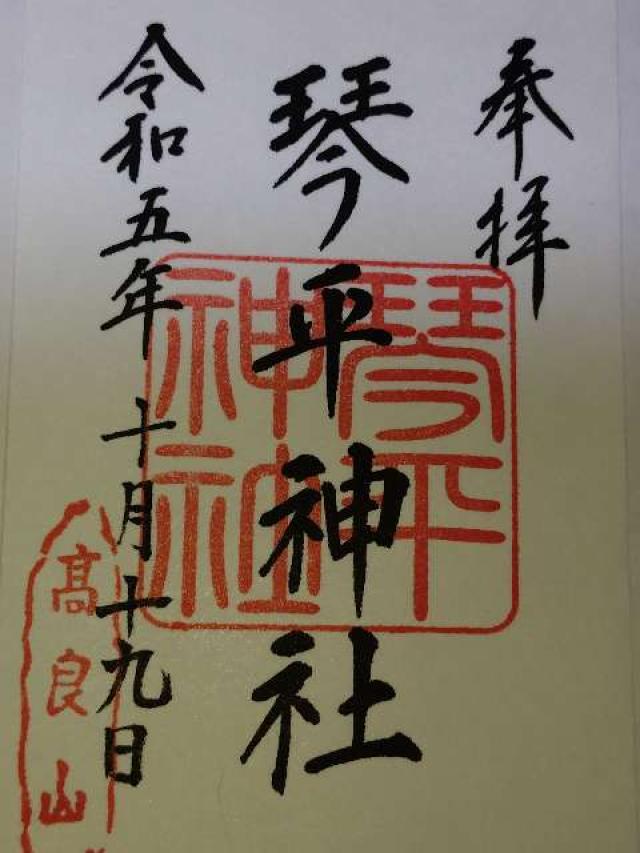 奉拝
琴平神社
令和五年十月十九日
琴平
神社
髙良山